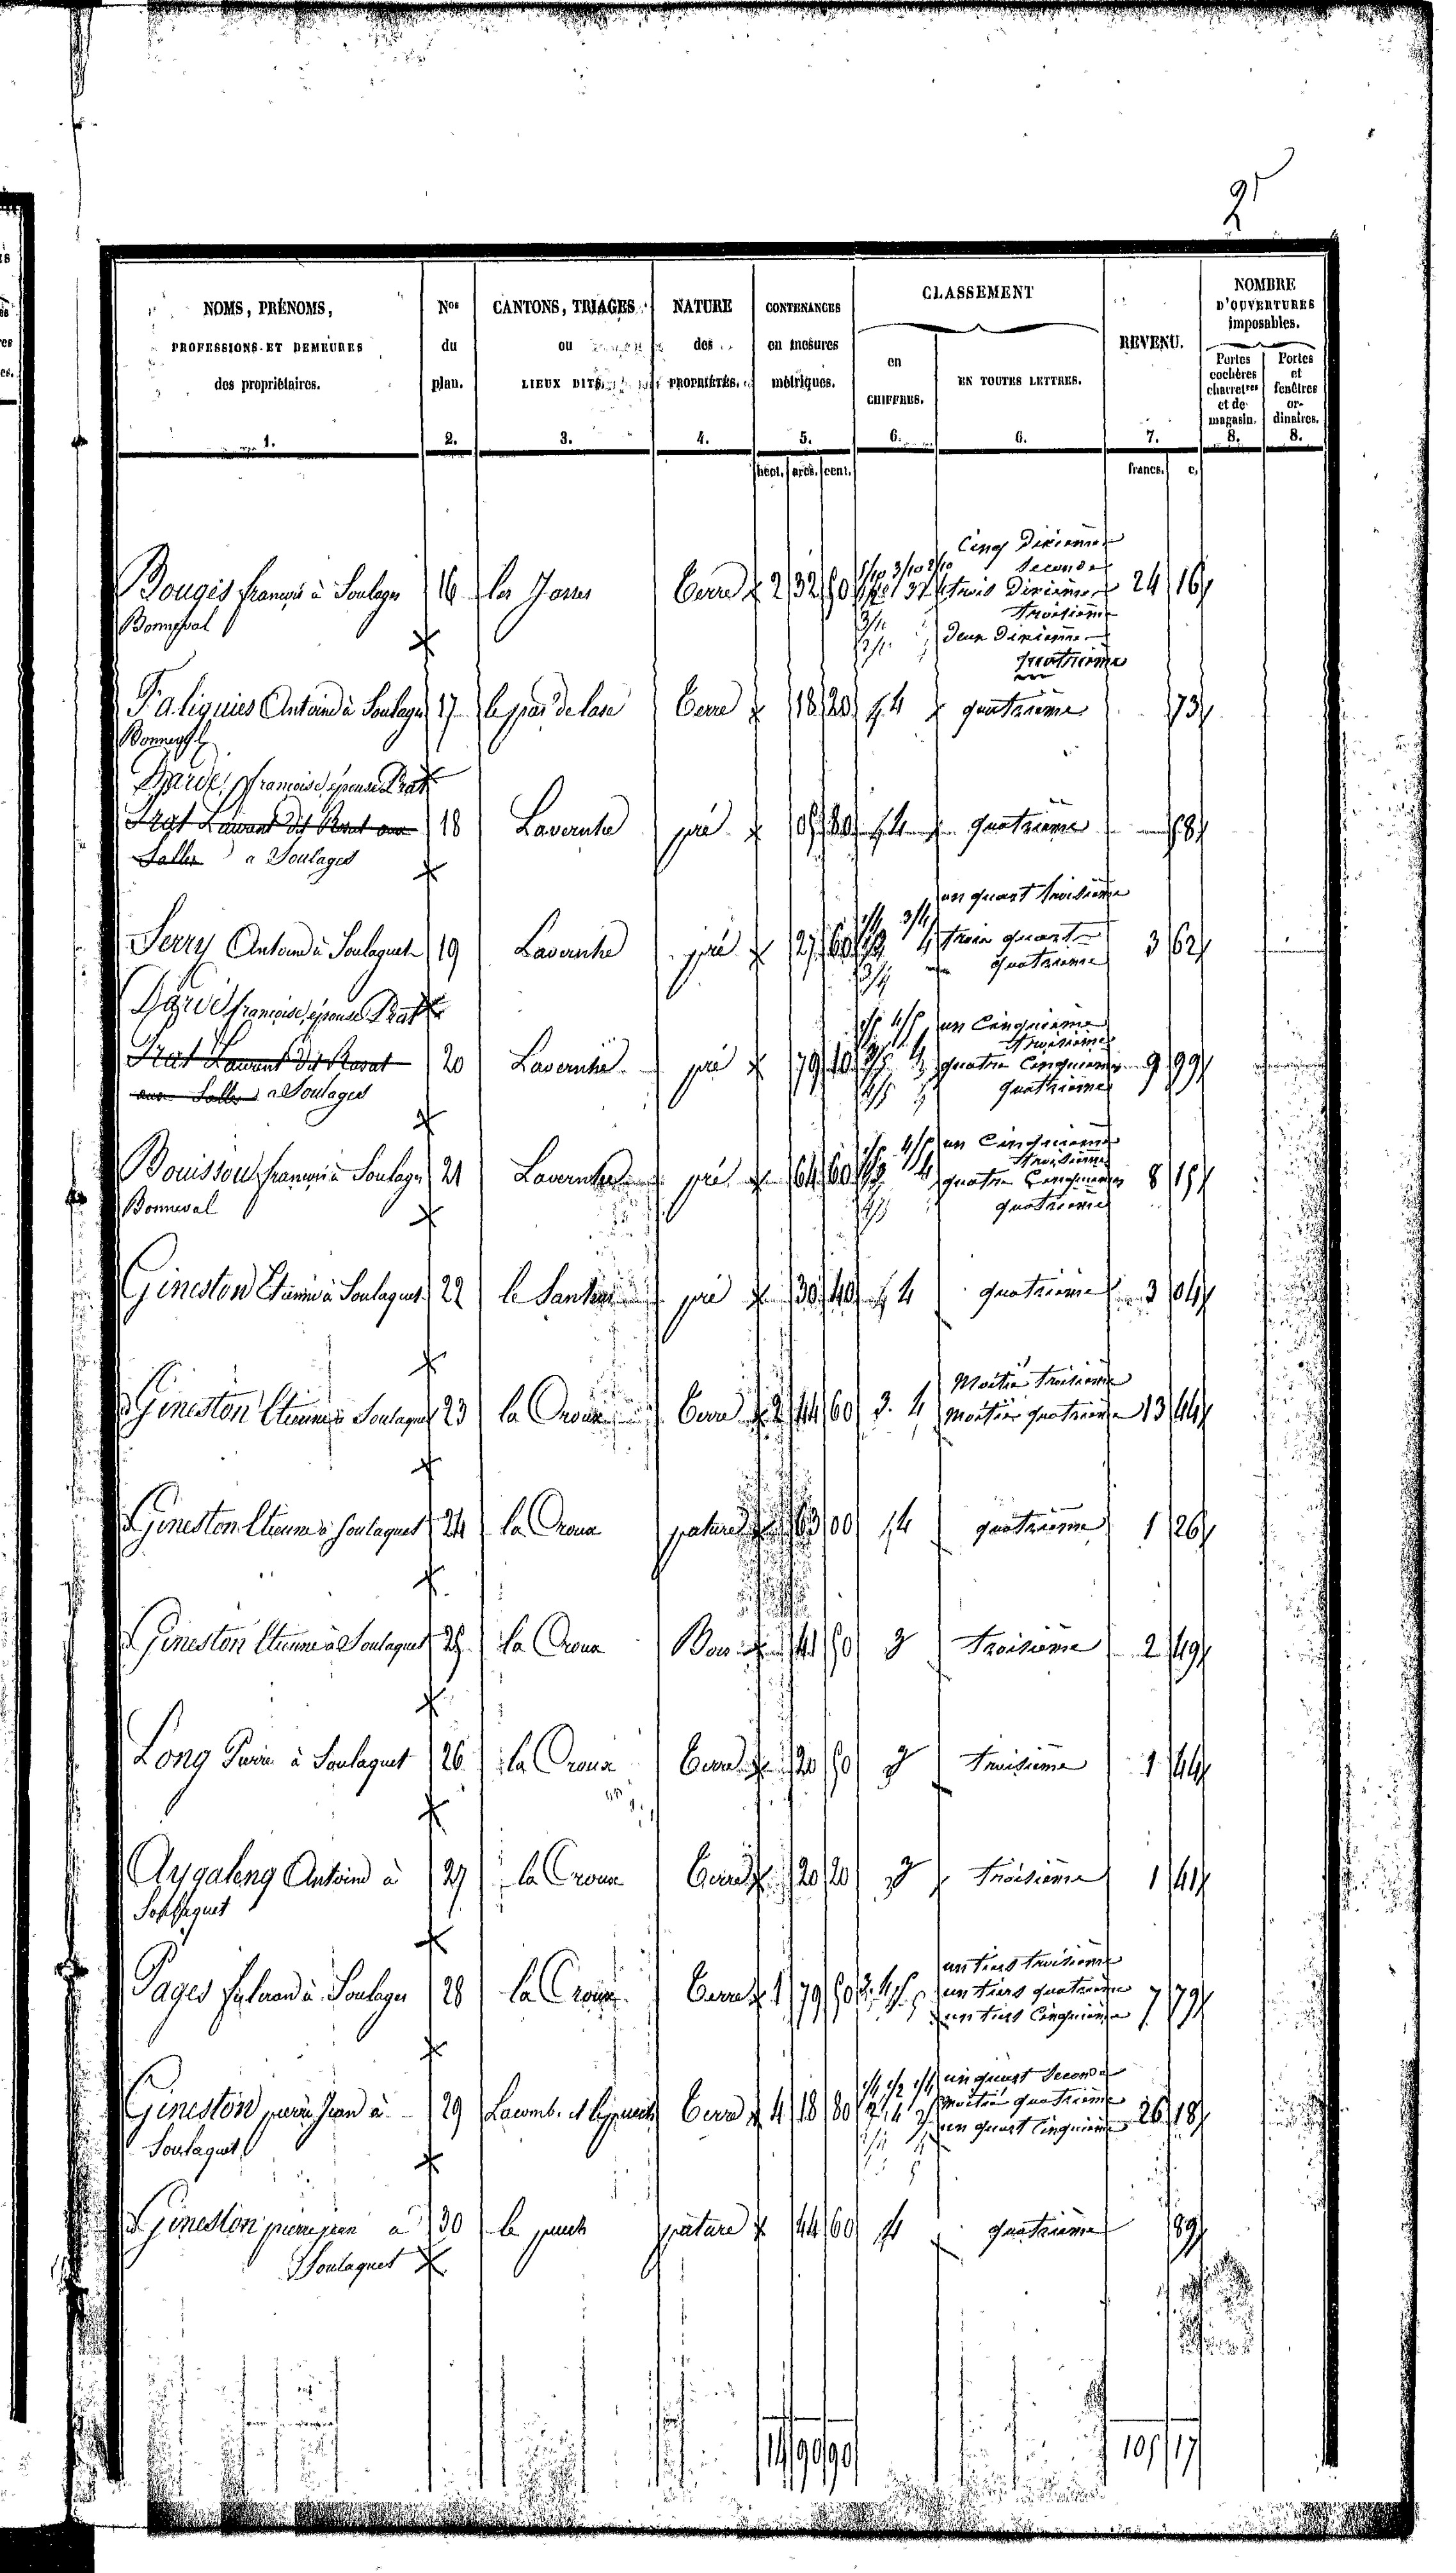 2
NOMS, PRÉNOMS,
PROFESSIONS ET DEMEURES
des propriétaires.
1.
Nos
du
plan.
2.
CANTONS, TRIAGES
ou
LIEUX DITS.
3.
NATURE
des
PROPRIÉTÉS.
4.
CONTENANCES
en mesures
métriques.
5.
CLASSEMENT
en
CHIFFRES.
6.
EN TOUTES LETTRES.
6.
REVENU.
7.
NOMBRE
D'OUVERTURES
imposables.
Portes
cochères
charretres
et de
magasin.
8.
Portes
et
fenêtres
or-
dinaires.
8.
hect. ares. cent.
francs. c.
Cinq Dixieme
Seconde
Bougis françois à Soulages 16 Terre 2 32 trois Dixieme 24 16
Troisieme
Bonneval
Deux Dixieme
quatrieme
Faliguies Antoine à Soulages 17 le pas de lase Terre 18 20 4 quatrieme 73
Bonneval
françoise, épouse Prat
Prat Laurent dit Rosat aux 18 Lavernhe pré 4 quatrieme 58
Salles a Soulages
un quart troisieme
Serry Antoine à Soulaguet 19 Lavernhe pré 27 60 trois quart 3 62
quatrieme
françoise, épouse Prat
un Cinquieme
troisieme
Prat Laurent dit Rosat 20 Lavernhe pré 79 10 quatre Cinquieme 9 99
aux Salles a Soulages quatrieme
un Cinquieme
troisieme
Bouissou françois à Soulages 21 Lavernhe pré 64 60 quatre Cinquieme 8 15
Bonneval quatrieme
Gineston Etienne à Soulaguet 22 pré 30 40 4 quatrieme 3 04
Moitié troisieme
Gineston Etienne à Soulaguet 23 la Croux Terre 2 44 60 3. 4 moitié quatrieme 13 44
Gineston Etienne à Soulaguet 24 la Croux pature 63 00 4 quatrieme 1 26
Gineston Etienne à Soulaguet 25 la Croux Bois 41 50 3 troisieme 2 49
Long Pierre à Soulaguet 26 la Croux Terre 20 50 3 troisieme 1 44
Aygaleng Antoine à 27 la Croux Terre 20 20 3 troisieme 1 41
Soulaguet
un tiers troisieme
Pages à Soulages 28 la Croux Terre 1 79 50 3. 4. 5 un tiers quatrieme 7 79
un tiers Cinquieme
un quart Seconde
Gineston pierre Jean à 29 Terre 4 18 80 moitié quatrieme 26 18
un quart Cinquieme
Soulaguet
Gineston pierre jean a 30 le puech pature 44 60 4 quatrieme 89
Soulaguet
14 90 90 105 17